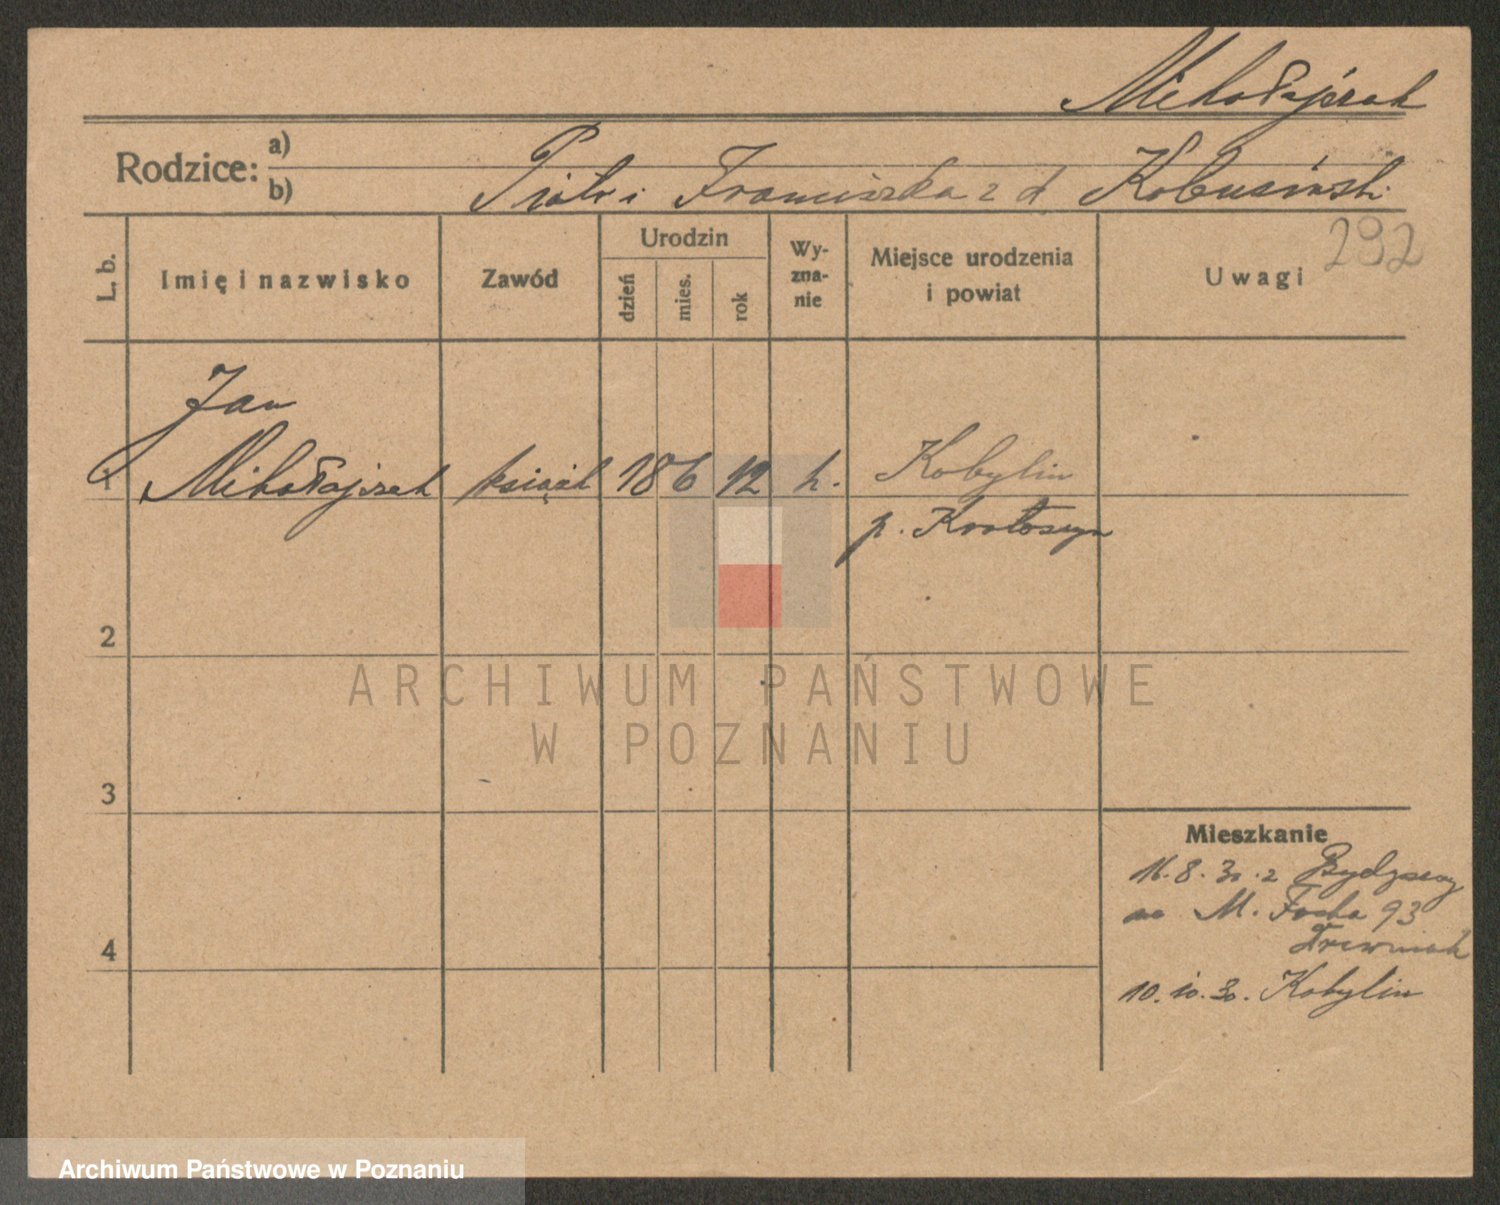 Mikołajczak
Rodzice:
a)
b) Piotr i Franciszka z d. Kobusińsk.
L. b.
Imię i nazwisko
Zawód
Urodzin
dzień
mies.
rok
Wy-
zna-
nie
Miejsce urodzenia
i powiat
Uwagi
292
Jan
1 Mikołajczak książk 18 6 12 k. Kobylin
p. Krotoszyn
2
3
4
Mieszkanie
16.8.30. z Bydgoszczy
na M. Focha 93
10.10.30. Kobylin
ARCHIWUM PAŃSTWOWE
W POZNANIU
Archiwum Państwowe w Poznaniu